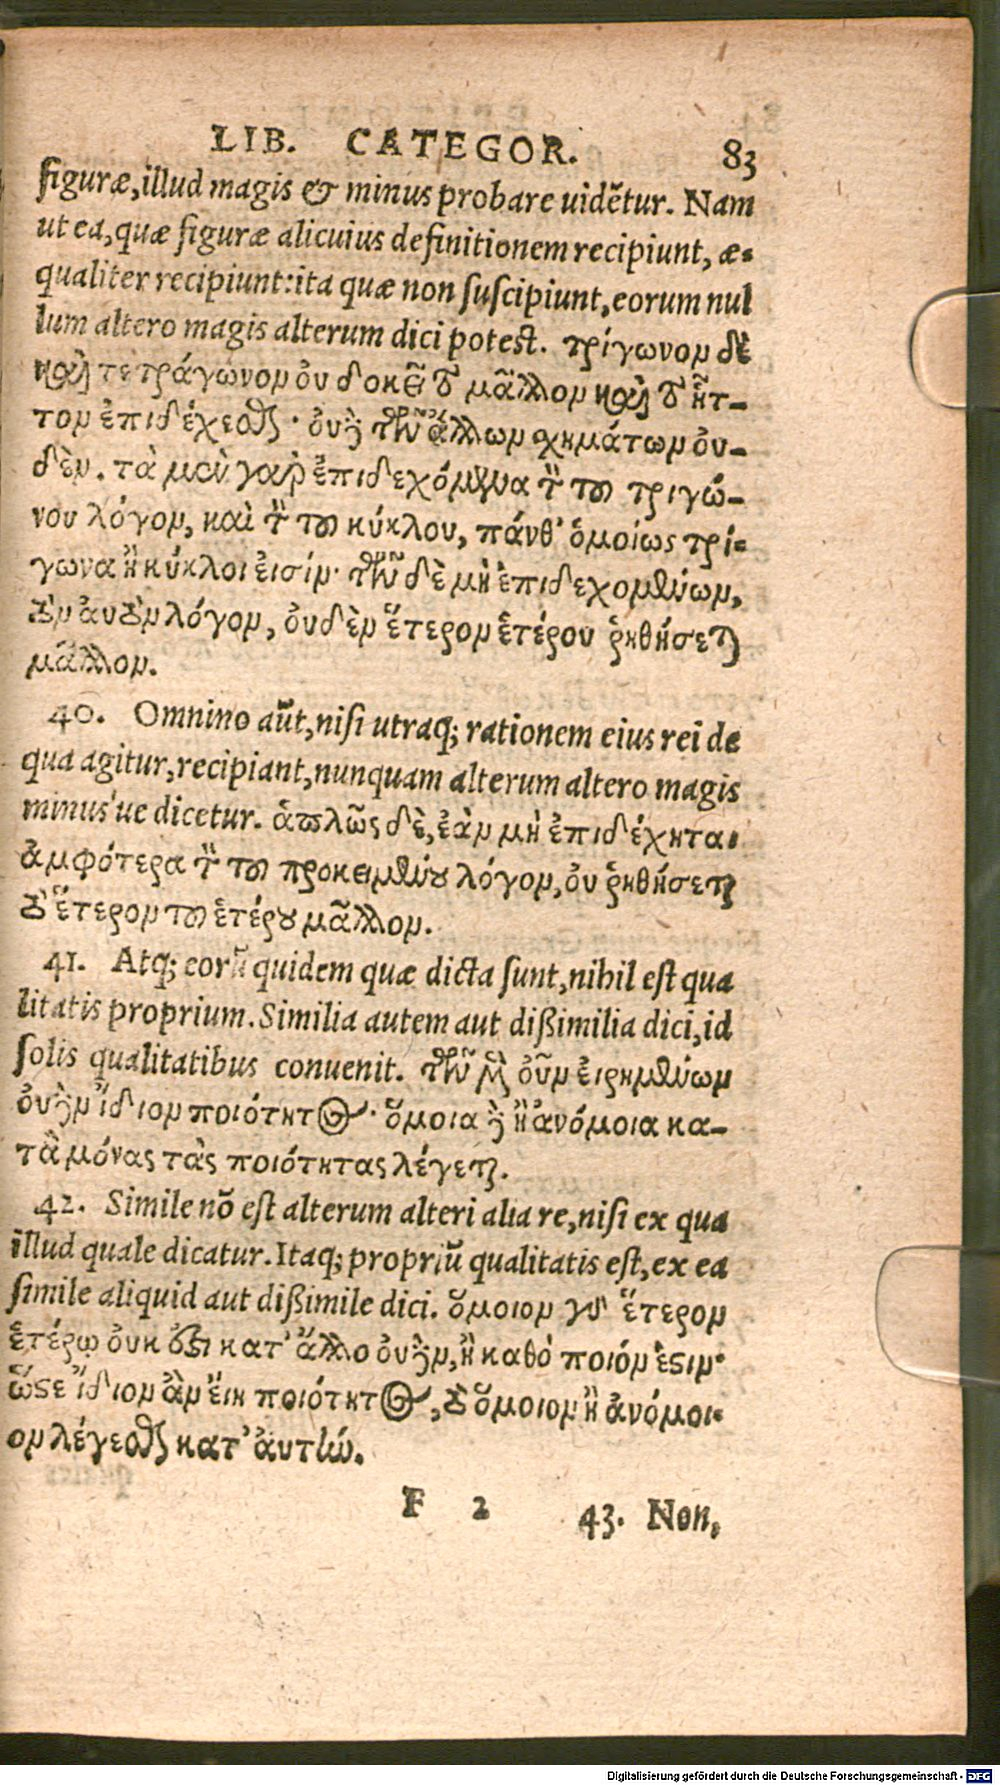 LIB. CATEGOR. 83
figuræ, illud magis & minus probare uidẽtur. Nam
ut ea, quæ figuræ alicuius definitionem recipiunt, æ-
qualiter recipiunt: ita quæ non suscipiunt, eorum nul
lum altero magis alterum dici potest. τρίγωνον δὲ
καὶ τετράγωνον οὐ δοκεῖ τὸ μᾶλλον καὶ τὸ ἧτ-
τον ἐπιδέχεσθαι· οὐδὲ τῶν ἄλλων σχημάτων οὐ-
δέν. τὰ μὲν γὰρ ἐπιδεχόμενα τὸν τοῦ τριγώ-
νου λόγον, καὶ τὸν τοῦ κύκλου, πάνθ' ὁμοίως τρί-
γωνα ἢ κύκλοι εἰσίν· τῶν δὲ μὴ ἐπιδεχομένων,
τὸν αὐτὸν λόγον, οὐδὲν ἕτερον ἑτέρου ῥηθήσεται
μᾶλλον.
40. Omnino aũt, nisi utraq; rationem eius rei de
qua agitur, recipiant, nunquam alterum altero magis
minus'ue dicetur. ἁπλῶς δὲ, ἐὰν μὴ ἐπιδέχηται
ἀμφότερα τὸν τοῦ προκειμένου λόγον, οὐ ῥηθήσεται
τὸ ἕτερον τοῦ ἑτέρου μᾶλλον.
41. Atq; eorũ quidem quæ dicta sunt, nihil est qua
litatis proprium. Similia autem aut dißimilia dici, id
solis qualitatibus conuenit. τῶν μὲν οὖν εἰρημένων
οὐδὲν ἴδιον ποιότητος· ὅμοια δὲ ἢ ἀνόμοια κα-
τὰ μόνας τὰς ποιότητας λέγεται.
42. Simile nõ est alterum alteri alia re, nisi ex qua
illud quale dicatur. Itaq; propriũ qualitatis est, ex ea
simile aliquid aut dißimile dici. ὅμοιον γὰρ ἕτερον
ἑτέρῳ οὐκ ἔστι κατ' ἄλλο οὐδὲν, ἢ καθὸ ποιόν ἐστιν·
ὥστε ἴδιον ἂν εἴη ποιότητος, τὸ ὅμοιον ἢ ἀνόμοι-
ον λέγεσθαι κατ' αὐτήν.
F 2 43. Non,
Digitalisierung gefördert durch die Deutsche Forschungsgemeinschaft - DFG